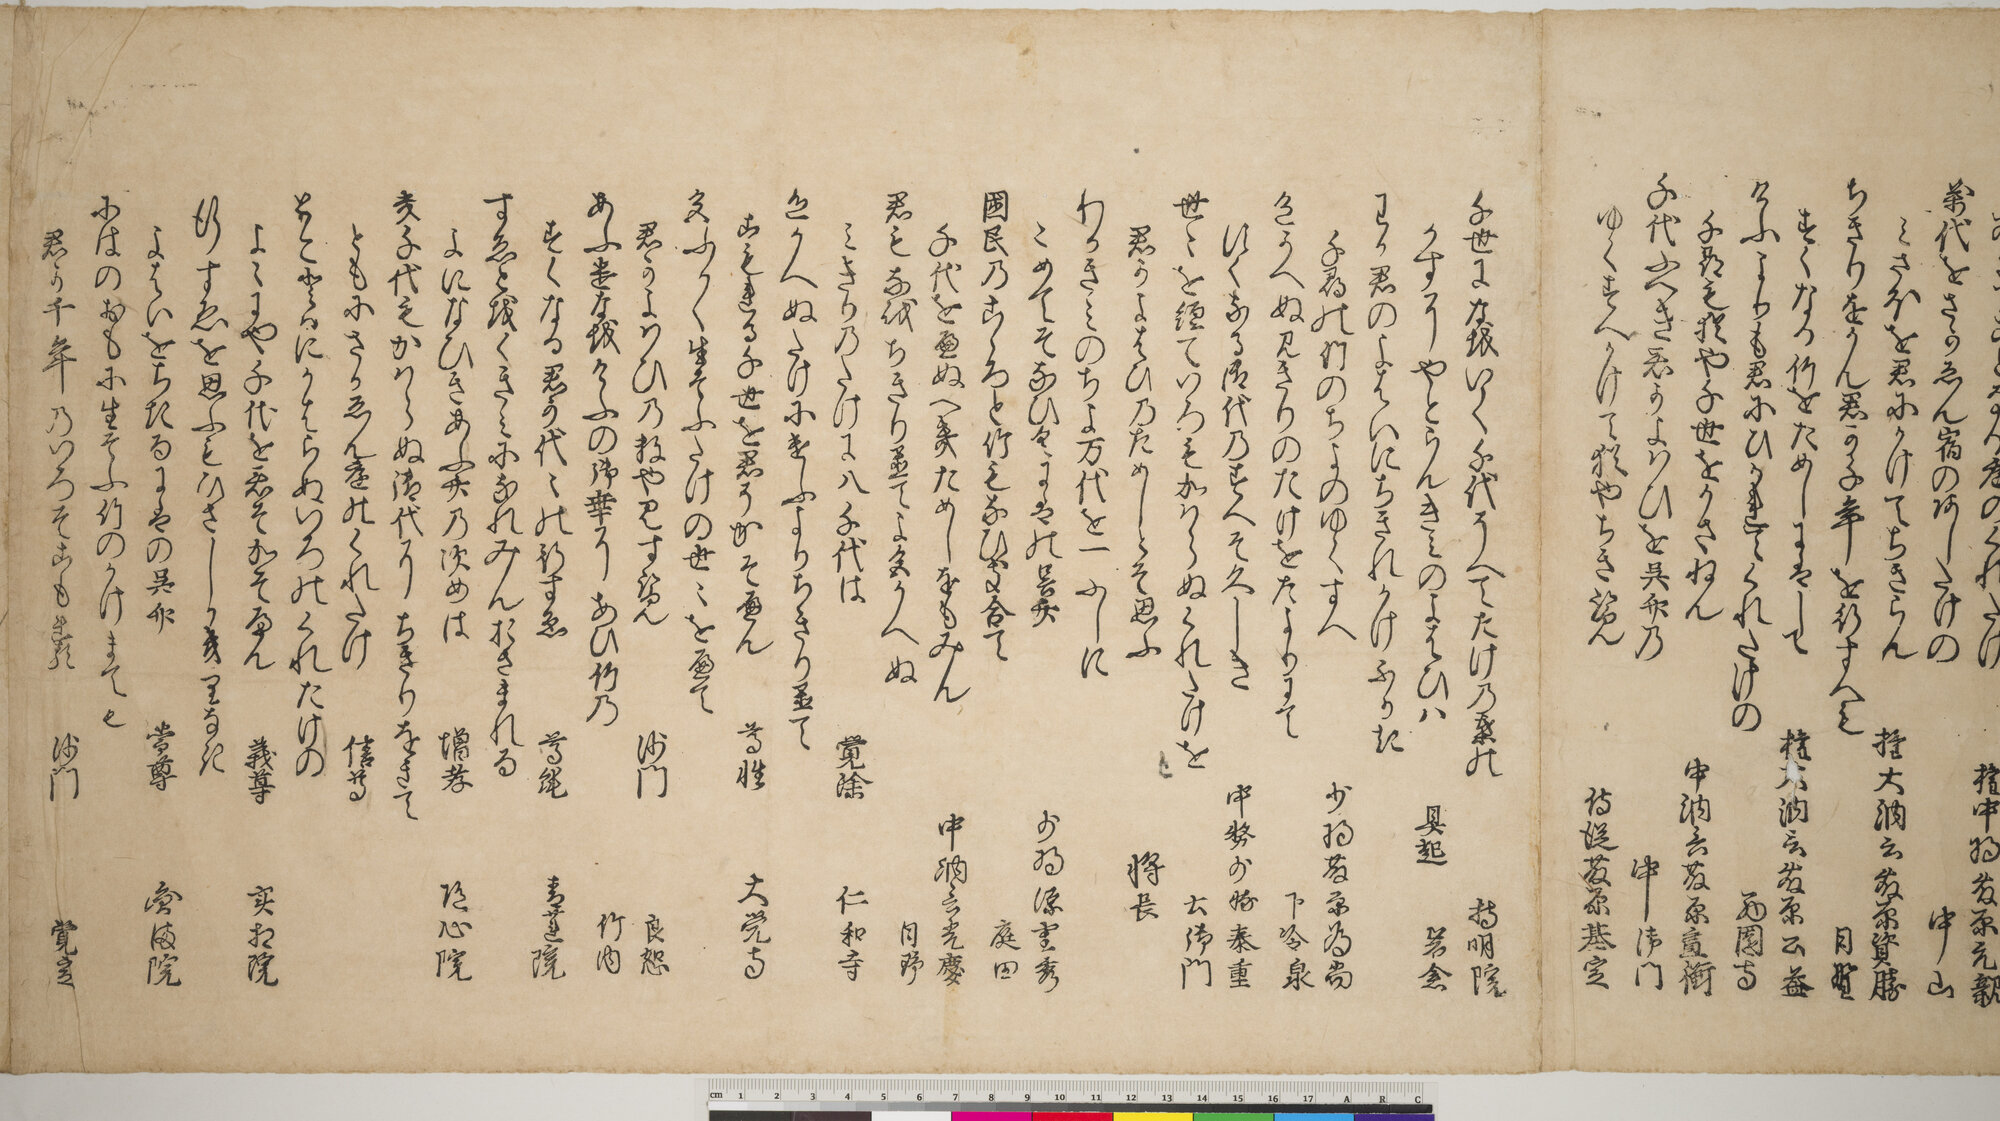 権中将藤原元親
萬代をさかゑん宿の
中山
みさほを君にかけてちきらん
権大納言藤原資勝
ちきりをかん君か千年を行すへも
日野
すくなる竹をためしにはして
権大納言藤原公益
けふよりも君にひかれてくれたけの
西園寺
千尋も猶や千世をかさねん
中納言藤原宣衡
千代ふへき君かよはひを呉竹乃
中御門
ゆくすへかけて猶やちきらん
侍従藤原基定
千世になをいく千代そへてたけ乃葉の
持明院
かすそやとらんきみのよはひハ
具起
岩倉
わか君のよはいにちきれかけふかき
千尋の竹のちよのゆくすへ
少将藤原為尚
色かへぬみきりのたけをたよりにて
下冷泉
すくなる御代乃すへそ久しき
中務少輔泰重
世ゝを経ていろもかハらぬくれたけを
土御門
君かよはひ乃ためしとそ思ふ
将長
わかきみのちよ万代を一ふしに
こめてそなひくにはの呉竹
少将源重秀
国民乃こゝろと竹もなひき合て
庭田
千代を重ぬへきためしをもみん
中納言光慶
君も我ちきり置てよ色かへぬ
日野
みきり乃たけに八千代は
覚深
仁和寺
色かへぬたけにけふよりちきり置て
こもれる千世を君そかそへん
尊性
大覚寺
文ふかく生そふたけの世ゝを重て
君かよハひ乃数や見すらん
沙門
良恕
あふきなをけふの御幸にあひ竹乃
竹内
すくなる君か代ゝの行すゑ
尊純
青蓮院
すゑとをくきみになれみんおさまれる
よになひきあふ竹乃次めは
増孝
随心院
幾千代もかハらぬ御代にちきりをきて
ともにさかゑん庭のくれたけ
信尊
ことさらにかはらぬいろのくれたけの
よゝにや千代を君そかそへん
義尊
実相院
行すゑを思ふもひさしかきりなき
よはいをちきるにはの呉竹
常尊
円満院
にはのおもに生そふ竹のかけまても
君か千年乃いろそこもれる
沙門
覚定